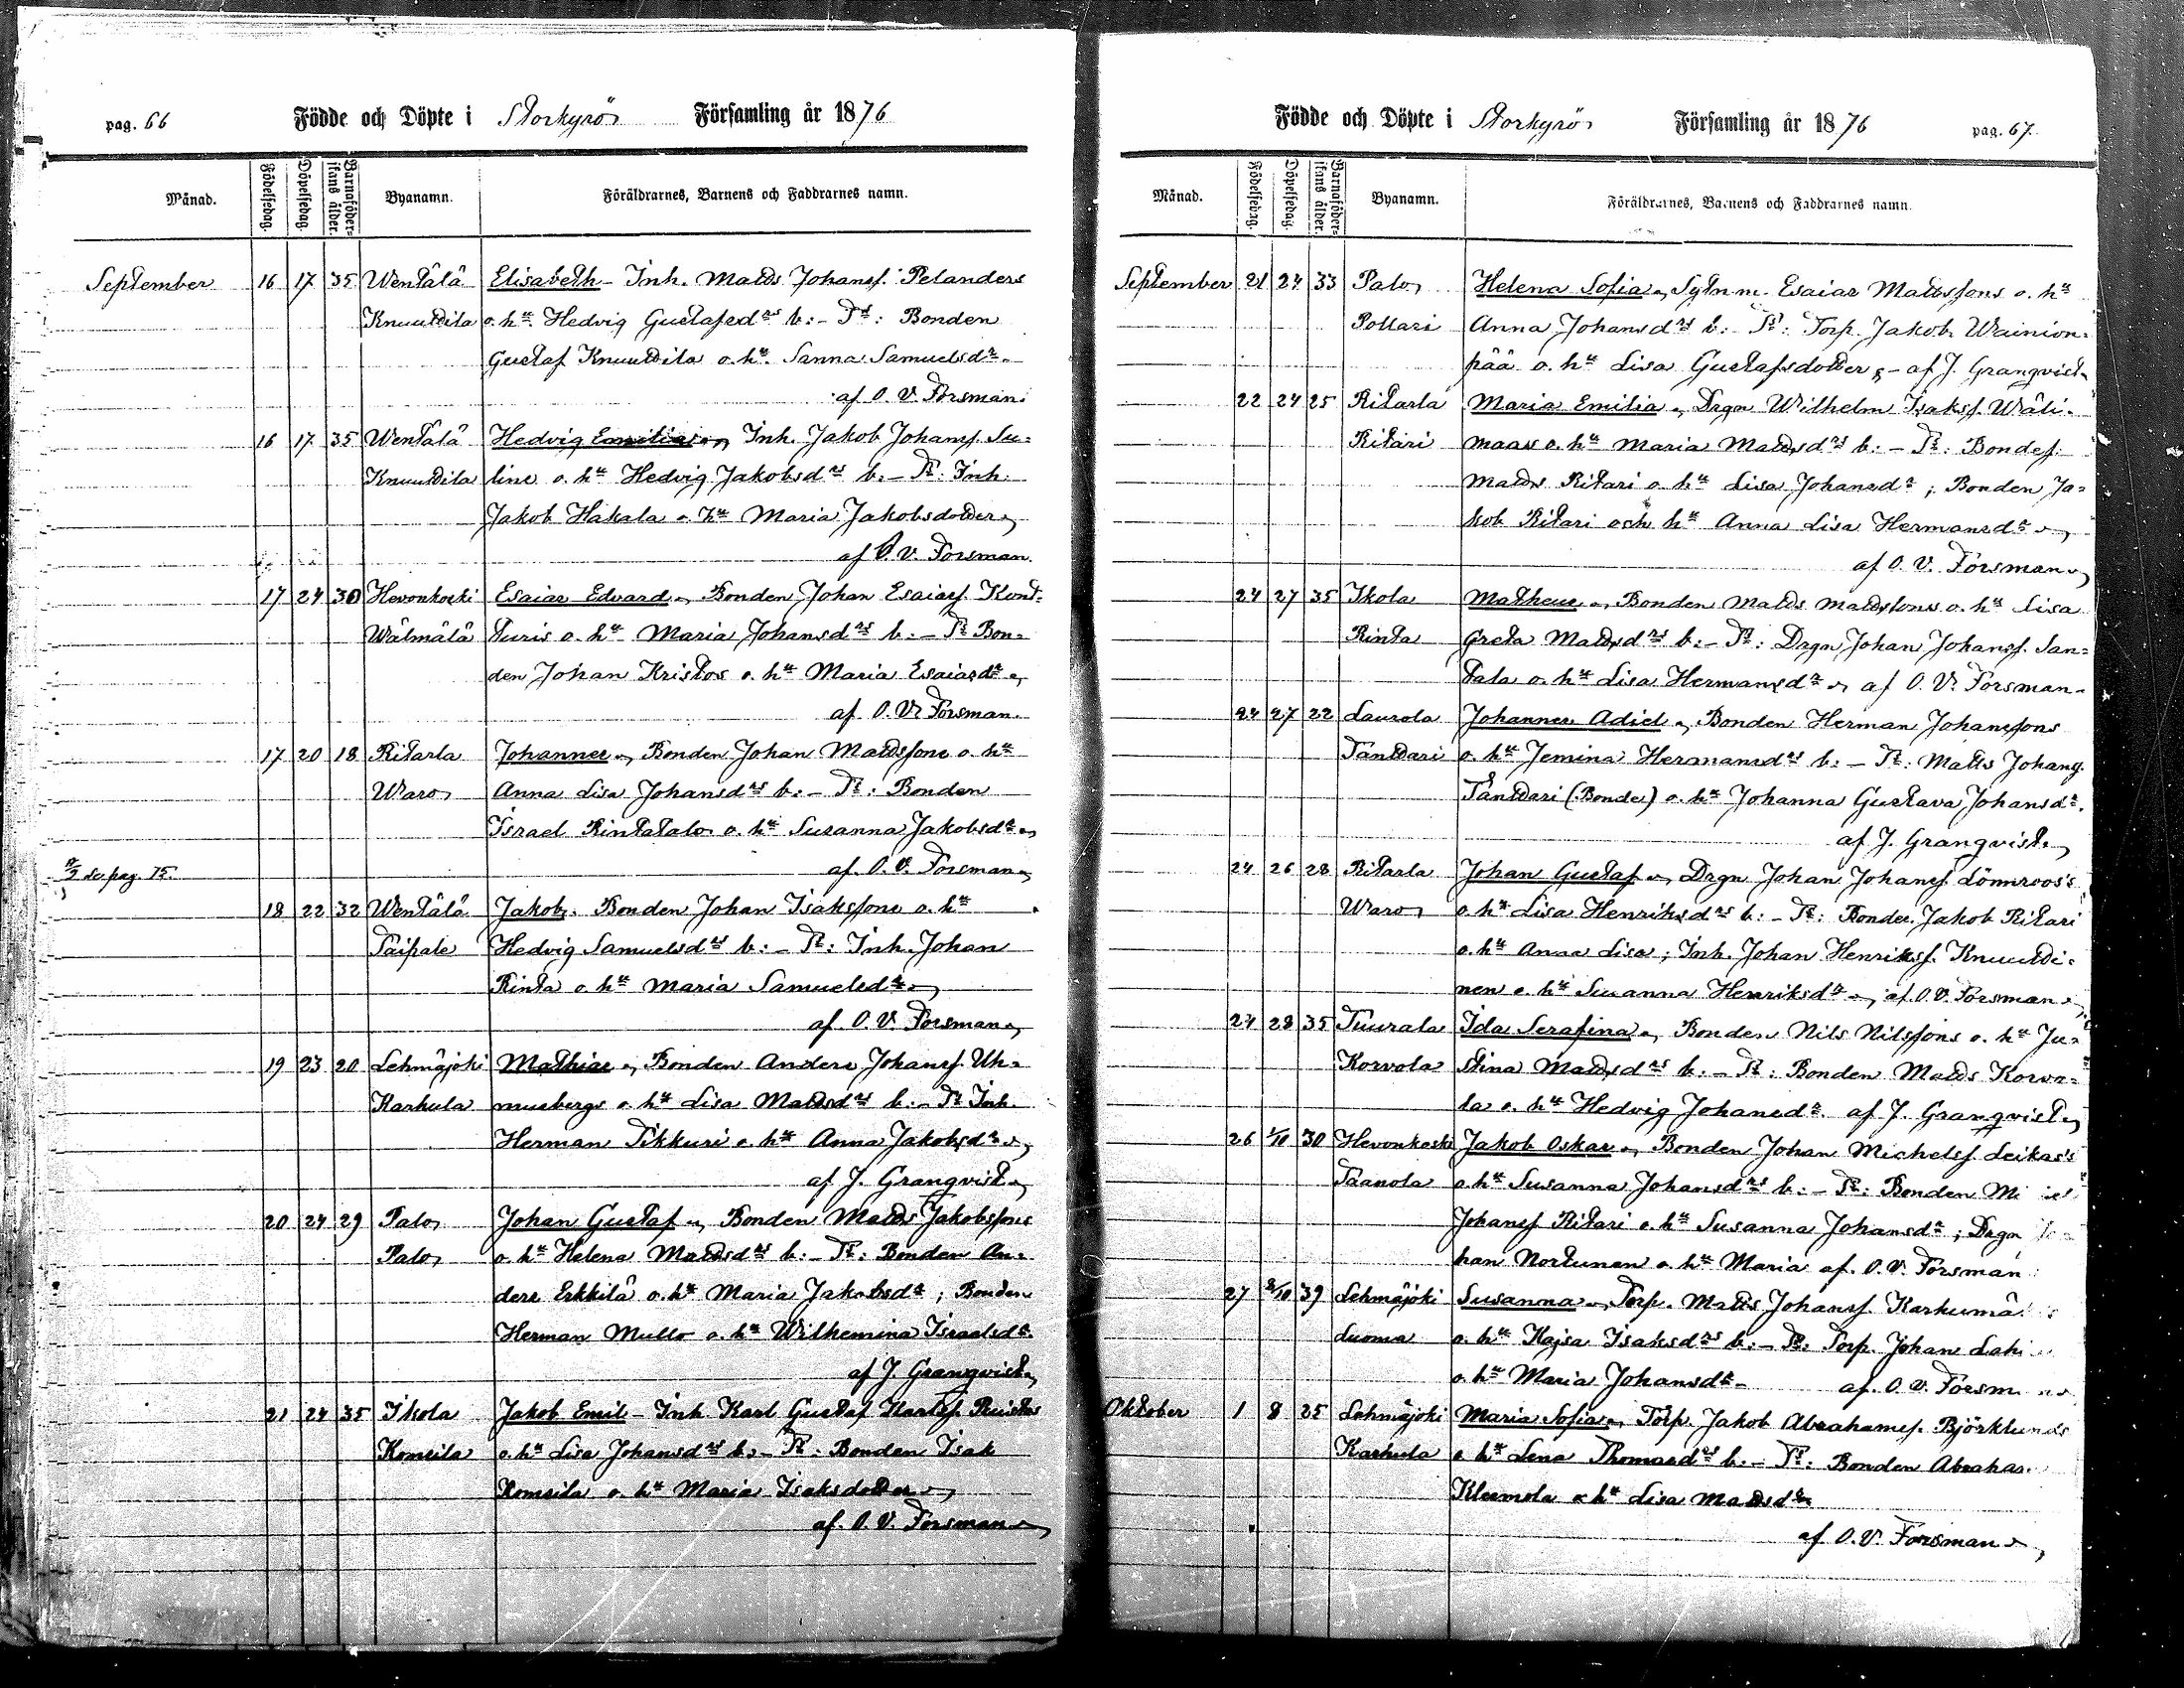 pag. 66 Födde och Döpte i Storkyrö Församling år 1876
Månad. Födelsedag. Döpelsedag. Barnaföderskans ålder. Byanamn. Föräldrarnes, Barnens och Faddrarnes namn.
September 16 17 35 Wentälä Elisabeth - Inh. Matts Johansf. Pelanders
Knuuttila o. hu Hedvig Gustafsdrs b: - Tt: Bonden
Gustaf Knuuttila o. hu. Sanna Samuelsdr.
af O. V. Forsman.
16 17 35 Wentälä Hedvig Emilia Inh. Jakob Johansf. Su=
Knuuttila line o. hu Hedvig Jakobsdrs b. - Tt: Inh.
Jakob Hakala o. hu Maria Jakobsdotter
af O. V. Forsman.
17 24 30 Hevonkoski Esaias Edvard Bonden Johan Esaiasf. Kont=
Wälmälä turis o. hu Maria Johansdrs b: - Tt Bon=
den Johan Kristos o. hu Maria Esaiasdr
af. O. V. Forsman.
17 20 18 Ritarla Johannes Bonden Johan Mattssons o. hu
Waro Anna Lisa Johansdrs b: - Tt: Bonden
Israel Rintatalo o. hu Susanna Jakobsdr
se pag. 75. af. O. V. Forsman
18 22 32 Wentälä Jakob. Bonden Johan Isakssons o. hu
Taipale Hedvig Samuelsdrs b: - Tt: Inh. Johan
Rinta o. hu Maria Samuelsdr
af O. V. Forsman
19 23 20 Lehmäjoki Mathias Bonden Anders Johansf. Uh=
Karhula muebergs o. hu Lisa Mattsdrs b. - Tt Inh.
Herman Tikkuri o. hu Anna Jakobsdr
af J. Granqvist
20 24 29 Palo Johan Gustaf Bonden Matts Jakobssons
Palo o. hu Helena Mattsdrs b: - Tt: Bonden An=
ders Erkkilä o. hu Maria Jakobsdr; Bonden
Herman Mullo o. hu Wilhemina Israelsdr.
af J. Granqvist
21 24 35 Ikola Jakob Emil - Inh. Karl Gustaf Karlsf. Ruistos
Komsila o. hu Lisa Johansdrs b: - Tt: Bonden Isak
Komsila o. hu Maria Isaksdotter
af. O. V. Forsman
Födde och Döpte i Storkyrö Församling år 1876 pag. 67.
Månad. Födelsedag. Döpelsedag. Barnaföderskans ålder. Byanamn. Föräldrarnes, Barnens och Faddrarnes namn.
September 21 24 33 Palo Helena Sofia Sytnm. Esaias Mattssons o. hu
Pollari Anna Johansdrs b: Tt: Torp. Jakob Wainion=
pää o. hu Lisa Gustafsdotter - af J. Granqvist
22 24 25 Ritarla Maria Emilia Drgn Wilhelm Isaksf. Wäli=
Ritari maas o. hu Maria Mattsdrs b: - Tt: Bondes.
Matts Ritari o. hu Lisa Johansdr; Bonden Ja=
kob Ritari och hu Anna Lisa Hermansdr
af O. V. Forsman
24 27 35 Ikola Matheus Bonden Matts Mattssons o. hu Lisa
Rinta Greta Mattsdrs b: - Tt: Drgn Johan Johansf. San=
tala o. hu Lisa Hermansdr af O. V. Forsman.
24 27 22 Laurola Johannes Adiel Bonden Herman Johanssons
Tänttäri o. hu Jemina Hermansdrs b: - Tt: Matts Johansf.
Tänttäri (Bondes) o. hu Johanna Gustava Johansdr.
af J. Granqvist.
24 26 28 Ritarla Johan Gustaf Drgn Johan Johansf. Lönnroos's
Waro o. hu Lisa Henriksdrs b: - Tt: Bonden Jakob Ritari
o. hu Anna Lisa; Inh. Johan Henriksf. Knuutti=
nen o. hu Susanna Henriksdr af. O. V. Forsman
27 28 35 Tuurala Ida Serafina Bonden Nils Nilssons o. hu Ju=
Korvola stina Mattsdrs b: - Tt: Bonden Matts Korvo=
la o. hu Hedvig Johansdr. af J. Granqvist
26 1/10 30 Hevonkoski Jakob Oskar Bonden Johan Michelsf. Leikas's
Taanola o. hu Susanna Johansdrs b: - Tt: Bonden
Johansf. Ritari o. hu Susanna Johansdr; Drgn Jo=
han Nortunen o. hu Maria af. O. V. Forsman
27 8/10 39 Lehmäjoki Susanna Torp. Matts Johansf. Karhumä
Luoma o. hu Kajsa Isaksdrs b: - Tt: Torp. Johan Lahi
o. hu Maria Johansdr - af. O. V. Forsman
Oktober 1 8 25 Lehmäjoki Maria Sofia Torp. Jakob Abrahamsf. Björklunds
Karhula o hu Lena Thomasdrs b. - Tt: Bonden Abraha
Kleemola o hu Lisa Mattsdr
af O. V. Forsman